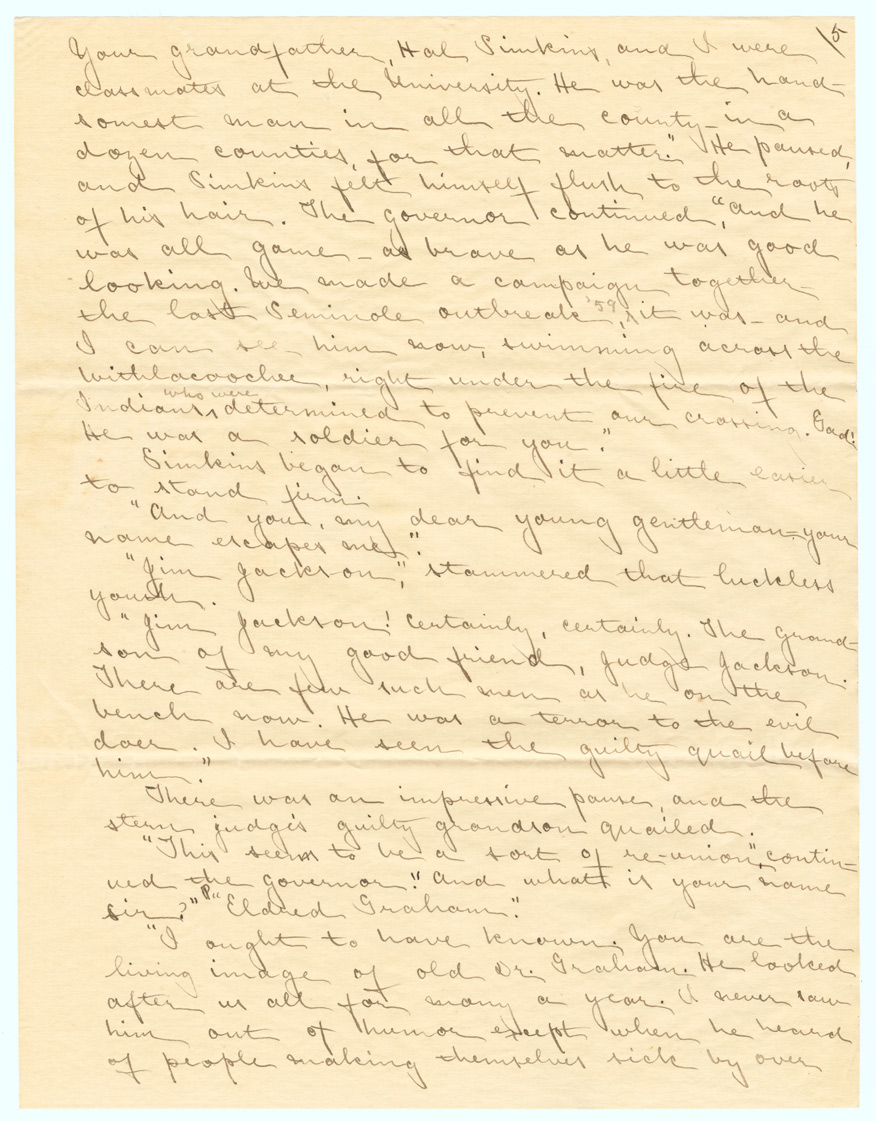 15
Your grandfather, Hal Simkins, and I were
classmates at the University. He was the hand-
somest man in all the county - in a
dozen counties, for that matter." He paused,
and Simkins felt himself flush to the roots
of his hair. The governor continued, "And he
was all game - as brave as he was good
looking. We made a campaign together -
the last Seminole outbreak, '59, it was - and
I can see him now, swimming across the
Withlacoochee, right under the fire of the
Indians, who were determined to prevent our crossing. Gad!
He was a soldier for you."
Simkins began to find it a little easier
to stand firm.
"And you, my dear young gentleman - your
name escapes me".
"Jim Jackson", stammered that luckless
youth.
"Jim Jackson! Certainly, certainly. The grand-
son of my good friend, Judge Jackson.
There are few such men as he on the
bench now. He was a terror to the evil
doer. I have seen the guilty quail before
him."
There was an impressive pause, and the
stern judge's guilty grandson quailed.
"This seems to be a sort of re-union", contin-
ued the governor. "And what is your name
sir?" P "Eldred Graham".
"I ought to have known. You are the
living image of old Dr. Graham. He looked
after us all for many a year. I never saw
him out of humor except when he heard
of people making themselves sick by over